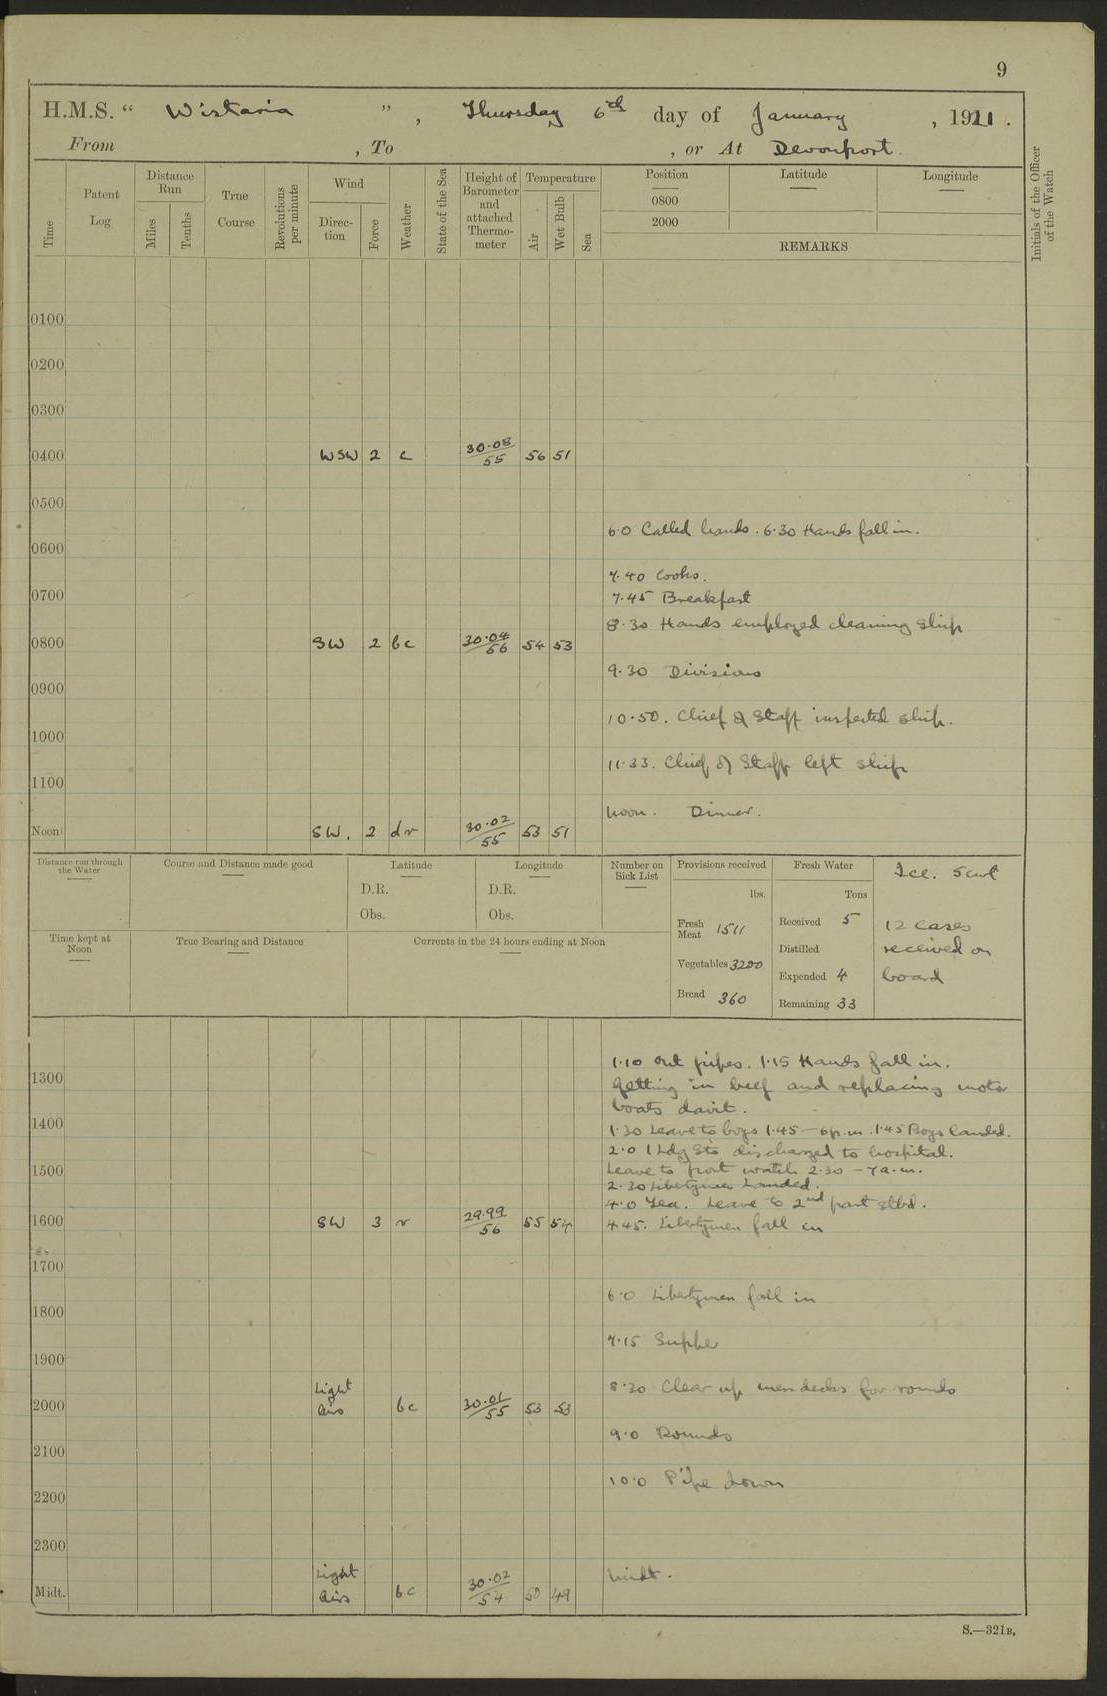 9
H.M.S. " Wistaria ", Thursday 6th day of January, 1921.
From , To , or At Devonport.
Time
Patent Log
Distance Run
Miles
Tenths
True Course
Revolutions per minute
Wind
Direction
Force
Weather
State of the Sea
Height of Barometer and attached Thermometer
Temperature
Air
Wet Bulb
Sea
Position
Latitude
Longitude
0800
2000
REMARKS
Initials of the Officer of the Watch
0100
0200
0300
0400 WSW 2 c 30.08/55 56 51
0500
6.0 Called hands. 6.30 Hands fall in.
0600
7.40 Cooks.
0700
7.45 Breakfast
8.30 Hands employed cleaning ship
0800 SW 2 bc 30.04/56 54 53
9.30 Divisions
0900
10.50. Chief of Staff inspected ship.
1000
11.33. Chief of Staff left ship
1100
Noon. Dinner.
Noon SW. 2 dr 30.02/55 53 51
Distance run through the Water
Course and Distance made good
Latitude
D.R.
Obs.
Longitude
D.R.
Obs.
Number on Sick List
Provisions received
lbs.
Fresh Meat 1511
Vegetables 3200
Bread 360
Fresh Water
Tons
Received 5
Distilled
Expended 4
Remaining 33
Ice. 5 cwt
12 cases
received on
board
Time kept at Noon
True Bearing and Distance
Currents in the 24 hours ending at Noon
1.10 Out pipes. 1.15 Hands fall in.
1300
Getting in beef and replacing motor
boats davit.
1400
1.30 Leave to boys 1.45 – 6 p.m. 1.45 Boys landed.
2.0 1 Ldg Sto discharged to hospital.
1500
Leave to port watch 2.30 – 7 a.m.
2.30 Libertymen Landed.
4.0 Tea. Leave to 2nd part stbd.
1600 SW 3 r 29.99/56 55 54 4.45. Libertymen fall in
1700
6.0 Libertymen fall in
1800
7.15 Supper
1900
8.30 Clear up messdecks for rounds
2000 Light Airs bc 30.01/55 53 53
9.0 Rounds
2100
10.0 Pipe down
2200
2300
Midt.
Midt. Light Airs bc 30.02/54 50 49
S.—321B.